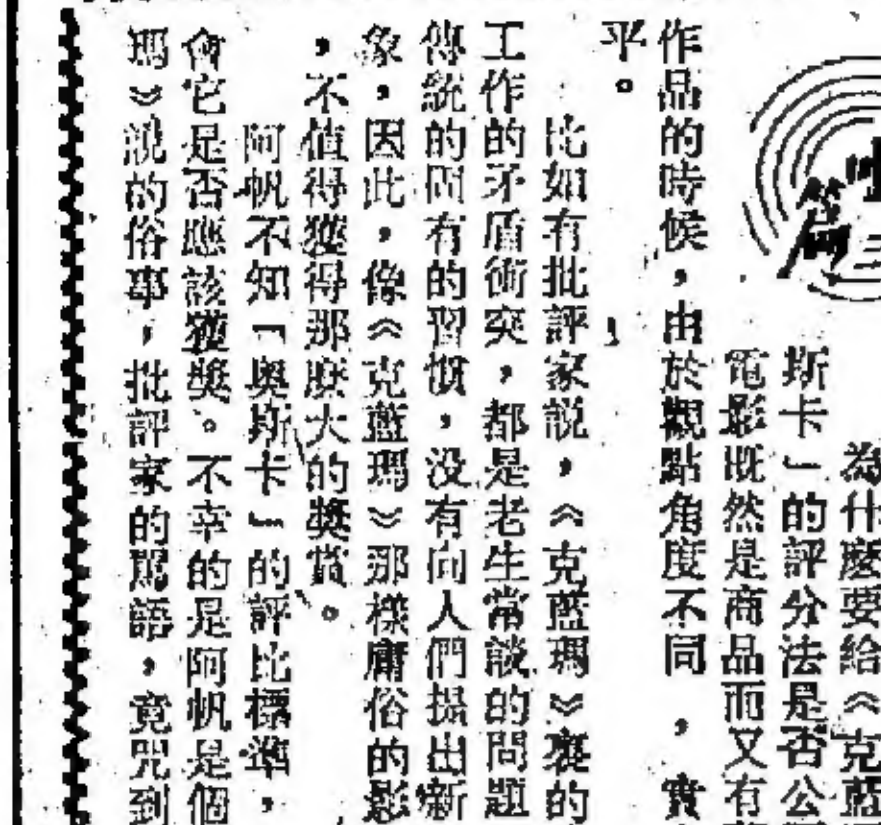 篇
為什麼要給《克藍
斯卡」的評分法是否公
電影既然是商品而又有
作品的時候，由於觀點角度不同，實
平。
比如有批評家說，《克藍瑪》裏的
工作的矛盾衝突，都是老生常談的問題
傳統的固有的習慣，没有向人們提出新
象，因此，像《克藍瑪》那樣庸俗的影
，不值得獲得那麼大的獎賞。
阿帆不知「奧斯卡」的評比標準，
會它是否應該獲獎。不幸的是阿帆是個
瑪》說的俗事，批評家的罵語，竟咒到